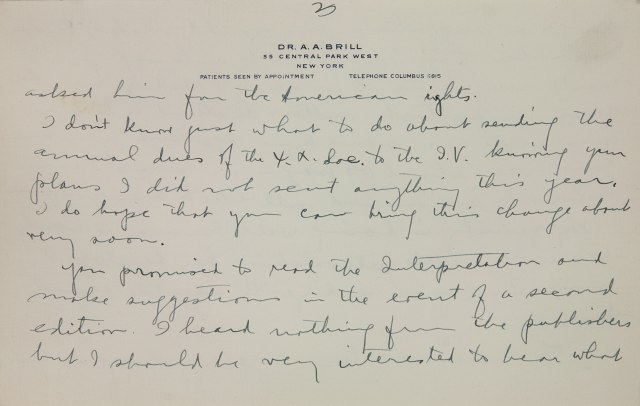 3
DR. A. A. BRILL
55 CENTRAL PARK WEST
NEW YORK
PATIENTS SEEN BY APPOINTMENT TELEPHONE COLUMBUS
asked him for the American rights.
I don't know just what to do about sending the
annual dues of the Soc. to the I.V. Knowing your
plans I did not sent anything this year.
I do hope that you can bring this change about
very soon.
You promised to read the Interpretation and
make suggestions in the event of a second
edition. I heard nothing from the publishers
but I should be very interested to hear what